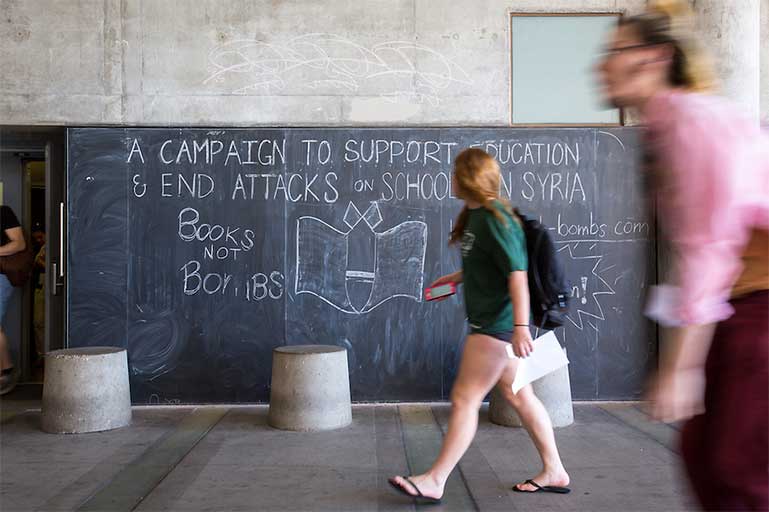 A CAMPAIGN TO SUPPORT EDUCATION
& END ATTACKS ON SCHOOLS IN SYRIA
BOOKS
NOT
BOMBS
-bombs.com